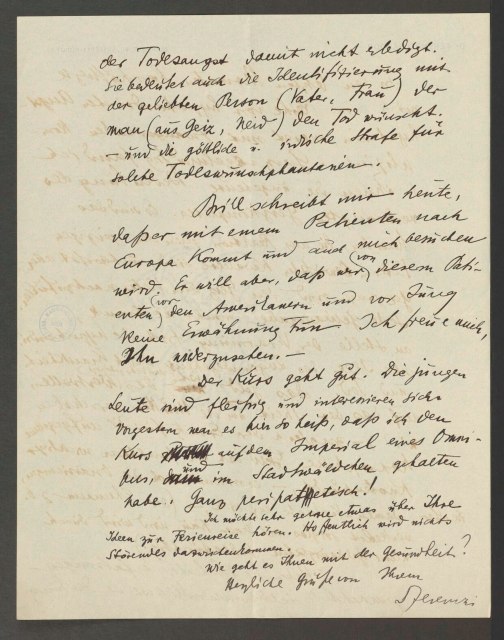 der Todesangst damit nicht erledigt.
Sie bedeutet auch die Identifizierung mit
der geliebten Person (Vater, Frau) der
man (aus Geiz, Neid) den Tod wünscht.
– und die göttliche u. irdische Strafe für
solche Todeswunschphantasien.
Brill schreibt mir heute,
daß er mit einem Patienten nach
Europa kommt und auch mich besuchen
wird. Er will aber, daß wir von diesem Pati-
enten vor den Amerikanern und vor Jung
keine Erwähnung tun. Ich freue mich,
Ihn wiederzusehen. –
Der Kurs geht gut. Die jungen
Leute sind fleißig und interessieren sich.
Vorgestern war es hier so heiß, daß ich den
Kurs auf dem Imperial eines Omni-
bus, und im Stadtwäldchen gehalten
habe. Ganz peripathetisch!
Ich möchte sehr gerne etwas über Ihre
Ideen zur Ferienreise hören. Hoffentlich wird nichts
Störendes dazwischenkommen.
Wie geht es Ihnen mit der Gesundheit?
Herzliche Grüße von Ihrem
Ferenczi